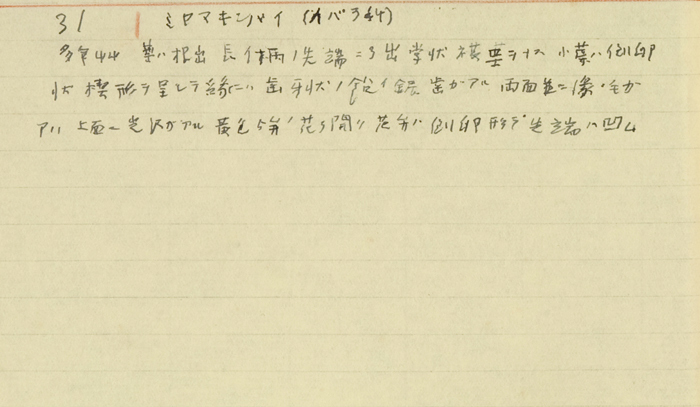 31 ミヤマキンバイ (バラ科)
多年艸 葉ハ根出 長イ柄ノ先端ニ3出掌状複葉ヲナス 小葉ハ倒卵
状楔形ヲ呈シテ縁ニハ歯牙状ノ鋭イ鋸歯ガアル 両面並ニ縁ニ毛ガ
アリ 上面ニ光沢ガアル 黄色5弁ノ花ヲ開ク 花弁ハ倒卵形デ先端ハ凹ム